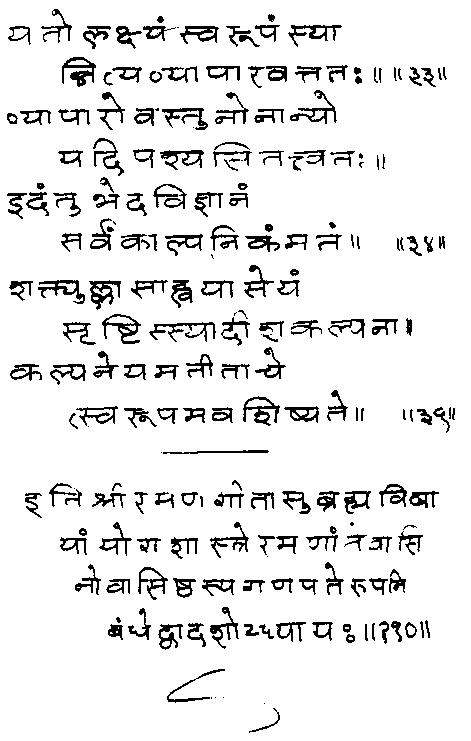 यतो लक्ष्यं स्वरूपं स्या
न्नित्यव्यापारवत्ततः॥ ॥३३॥
व्यापारो वस्तुनो नान्यो
यदि पश्यसि तत्त्वतः॥
इदं तु भेदविज्ञानं
सर्वं काल्पनिकं मतं॥ ॥३४॥
शक्त्युल्लासाह्वयासेयं
सृष्टिस्स्यादीशकल्पना।
कल्पनेयमतीता चे
त्स्वरूपमवशिष्यते॥ ॥३५॥
इति श्रीरमणगीतासु ब्रह्मविद्या
यां योगशास्त्रे रमणांतेवासि
नो वासिष्ठस्य गणपतेरुपनि
बंधे द्वादशोऽध्यायः॥